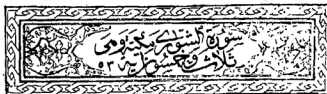 سورة الشورى مكية وهي
ثلاث وخمسون آية ٥٣